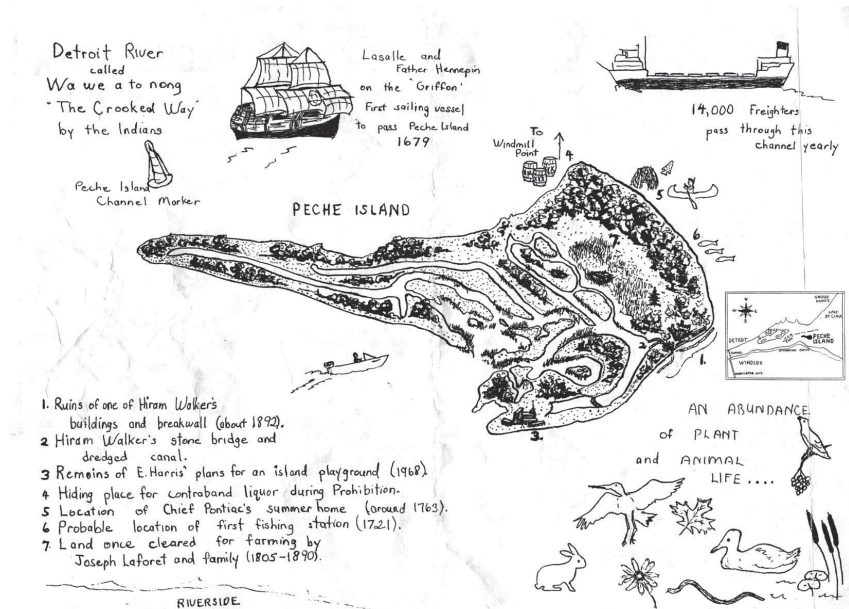 Detroit River
called
Wa we a to nong
"The Crooked Way"
by the Indians
Peche Island
Channel Marker
Lasalle and
Father Hennepin
on the "Griffon"
First sailing vessel
to pass Peche Island
1679
14,000 Freighters
pass through this
channel yearly
To
Windmill
Point
4
5
PECHE ISLAND
6
7
2
1.
3.
N
W
E
S
GROSSE
POINTE
LAKE
ST. CLAIR
DETROIT
PECHE
ISLAND
RIVERSIDE DRIVE
WINDSOR
1. Ruins of one of Hiram Walker's
buildings and breakwall (about 1892).
2 Hiram Walker's stone bridge and
dredged canal.
3 Remains of E. Harris' plans for an island playground (1968).
4 Hiding place for contraband liquor during Prohibition.
5 Location of Chief Pontiac's summer home (around 1763).
6 Probable location of first fishing station (1721).
7. Land once cleared for farming by
Joseph Laforet and family (1805-1890).
AN ABUNDANCE
of PLANT
and ANIMAL
LIFE....
RIVERSIDE